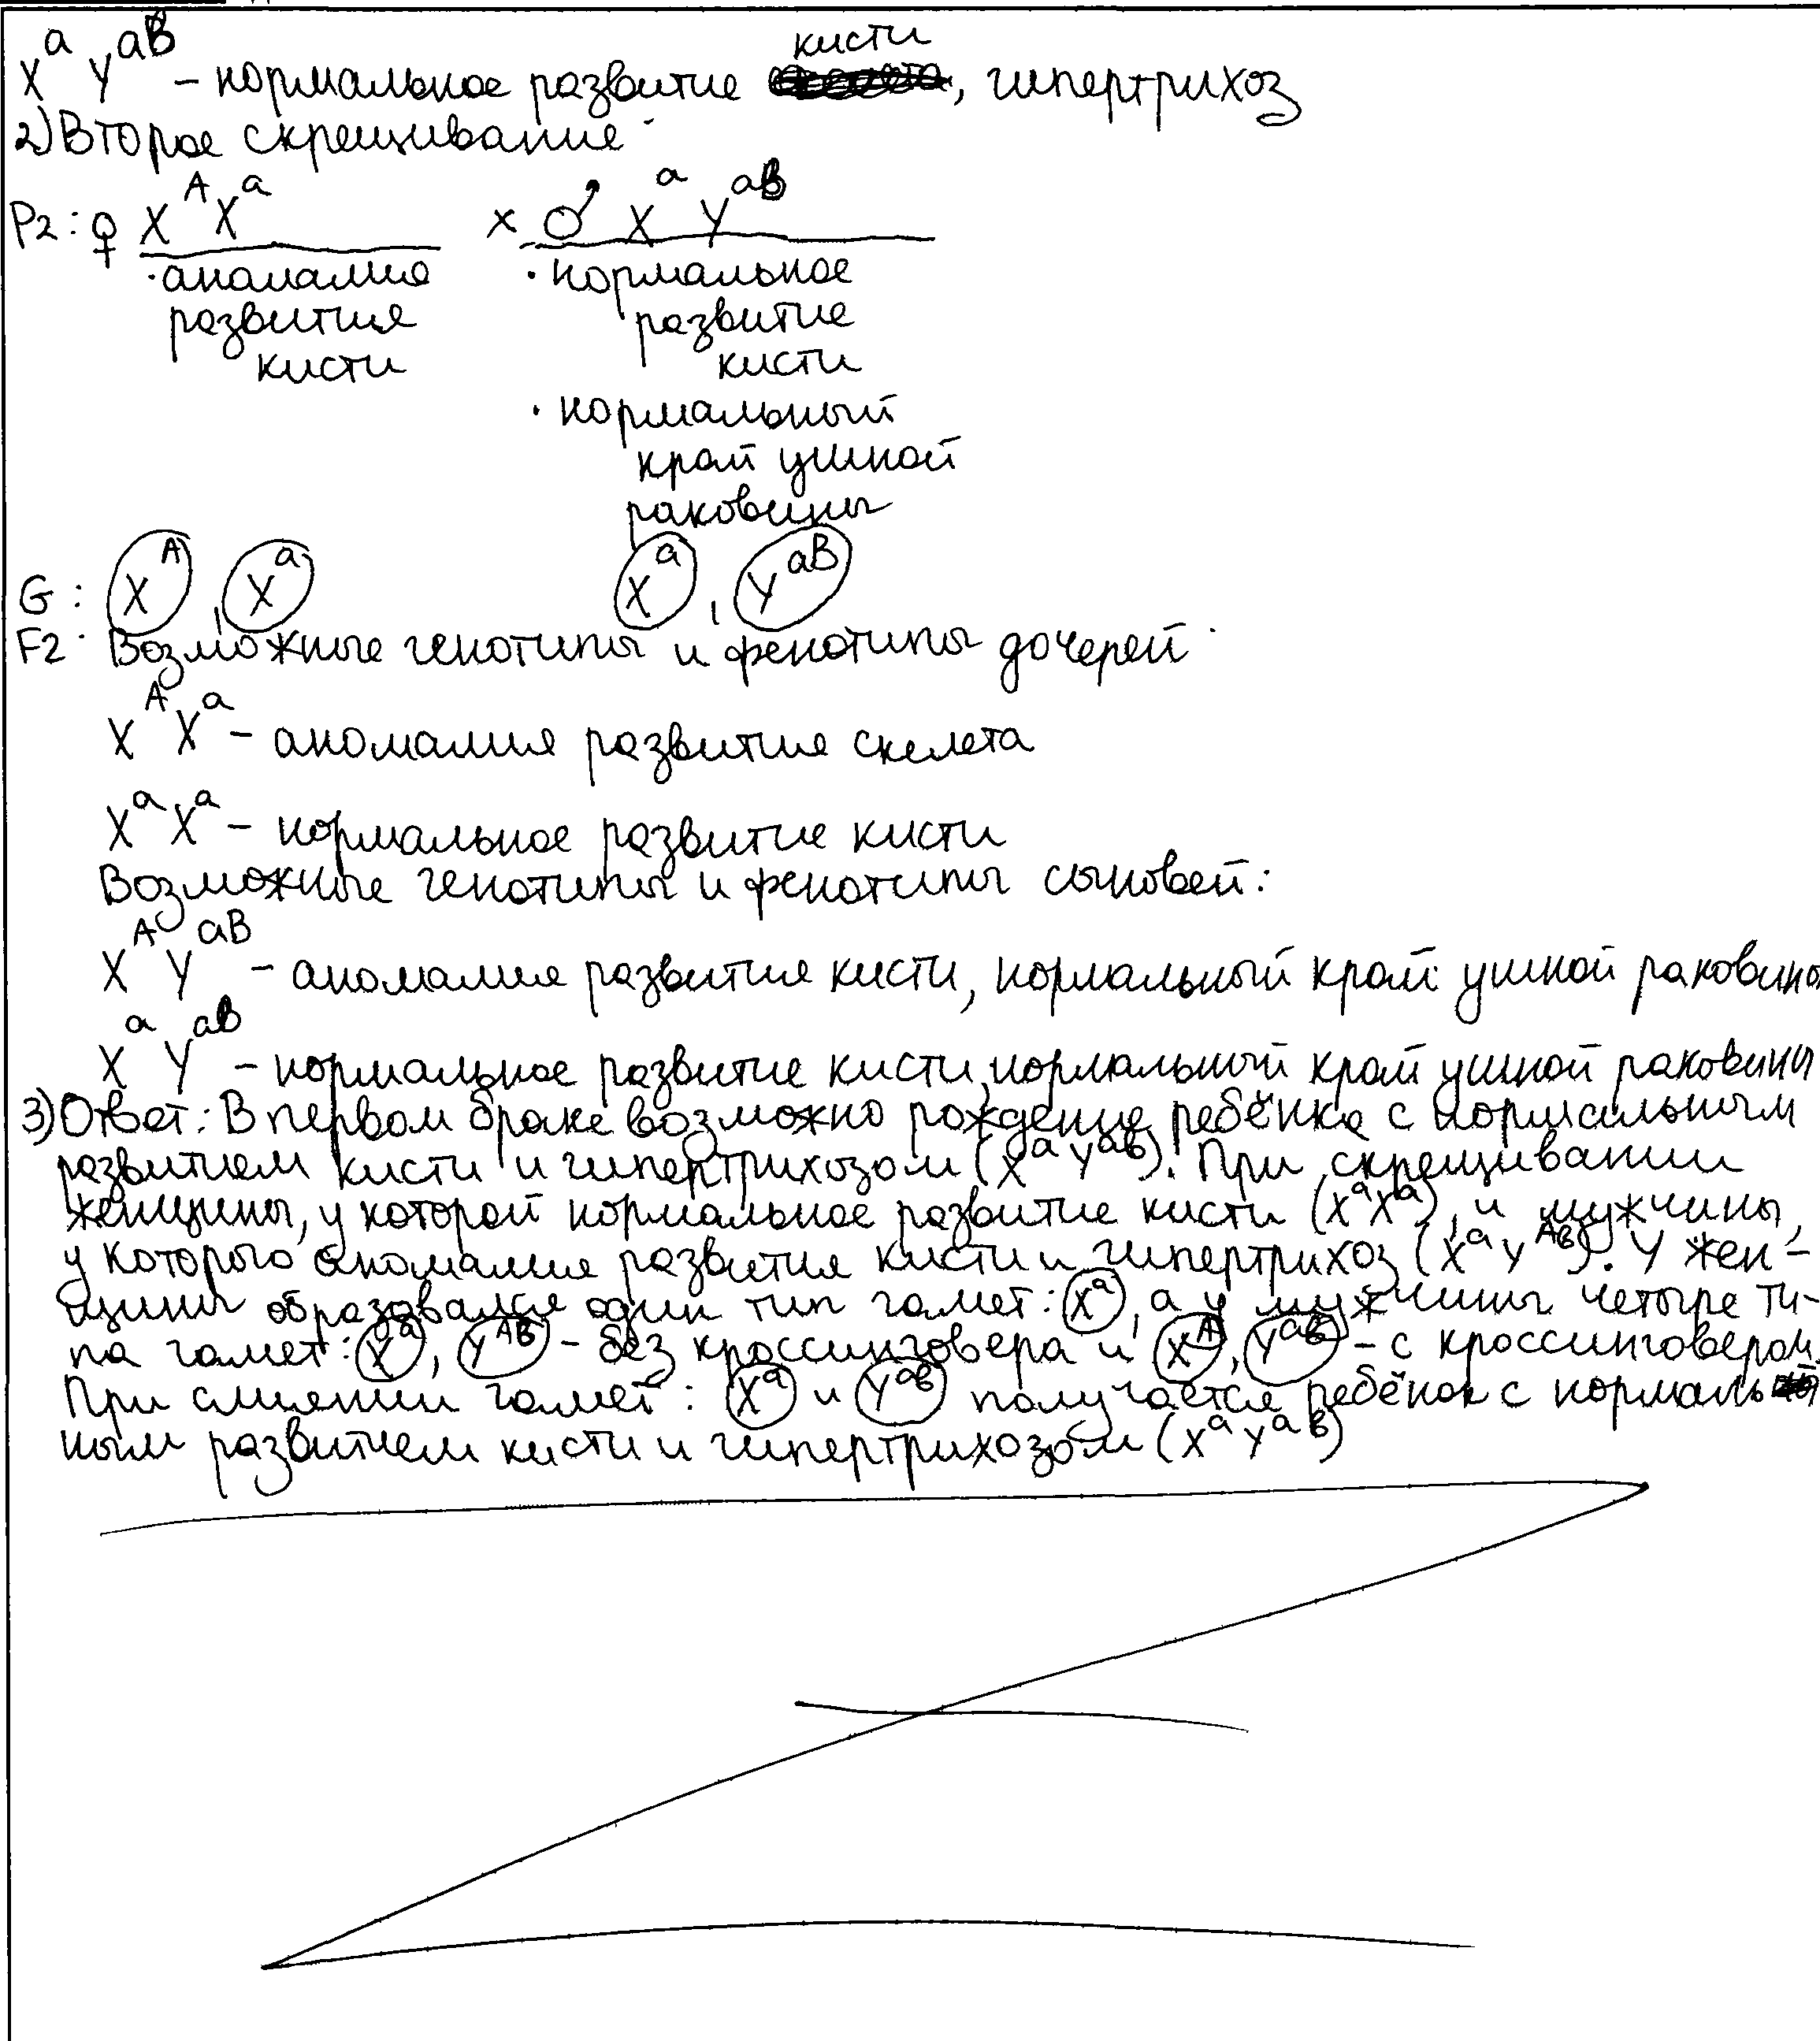 кисти
X^a Y^aB – нормальное развитие, гипертрихоз
2) Второе скрещивание:
P2: ♀ X^A X^a × ♂ X^a Y^aB
· аномалия · нормальное
развития развитие
кисти кисти
· нормальный
край ушной
раковины
G: X^A, X^a X^a, Y^aB
F2: Возможные генотипы и фенотипы дочерей:
X^A X^a – аномалия развития скелета
X^a X^a – нормальное развитие кисти
Возможные генотипы и фенотипы сыновей:
X^A Y^aB – аномалия развития кисти, нормальный край ушной раковины
X^a Y^aB – нормальное развитие кисти, нормальный край ушной раковины
3) Ответ: В первом браке возможно рождение ребёнка с нормальным
развитием кисти и гипертрихозом (X^a Y^ab). При скрещивании
женщины, у которой нормальное развитие кисти (X^a X^a), и мужчины,
у которого аномалия развития кисти и гипертрихоз (X^a Y^Ab). У жен-
щины образовался один тип гамет: X^a, а у мужчины четыре ти-
па гамет: X^a, Y^AB – без кроссинговера и X^A, Y^aB – с кроссинговером.
При слиянии гамет: X^a и Y^ab получается ребёнок с нормаль
ным развитием кисти и гипертрихозом (X^a Y^aB)